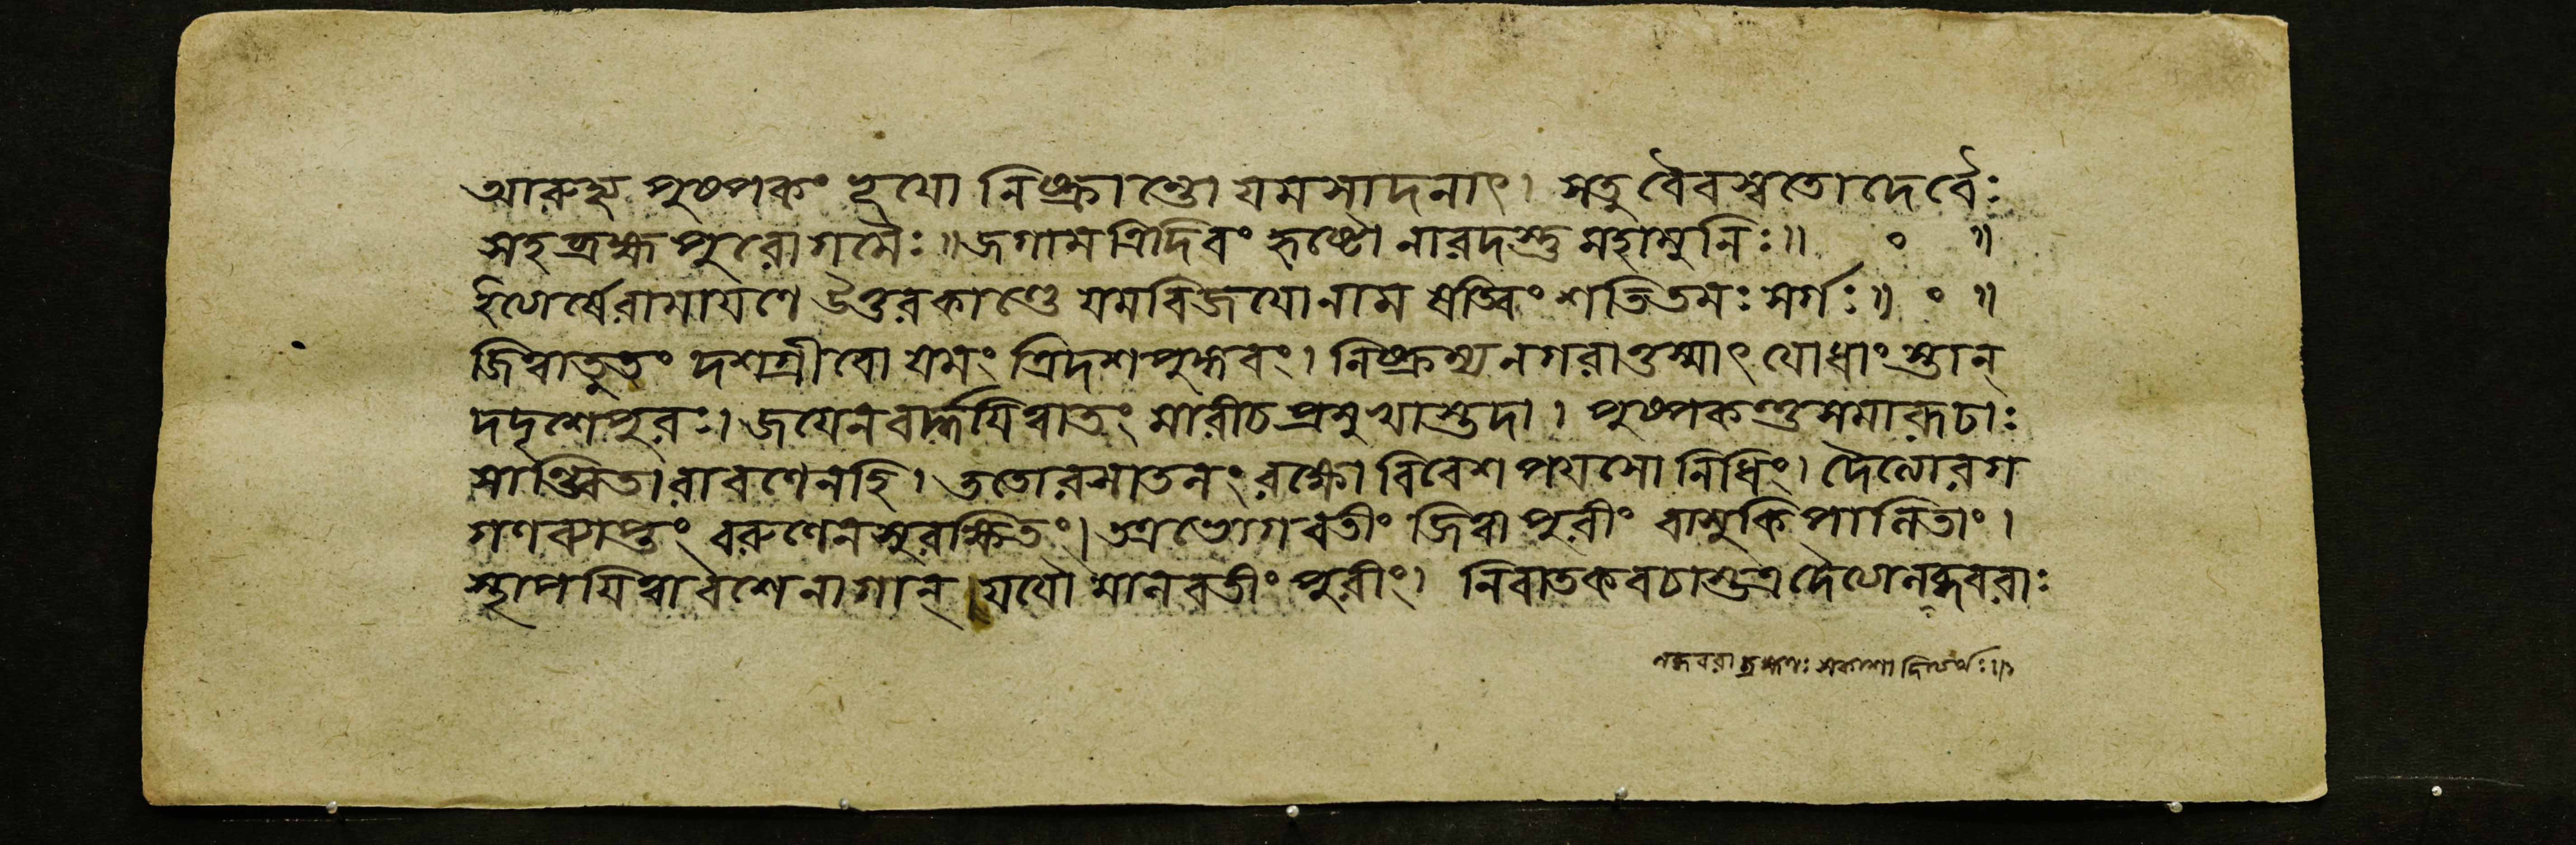 আরুহ্য পুষ্পকং হৃষ্টো নিষ্ক্রান্তো যমসাদনাৎ। সতু বৈবস্বতো দেবৈঃ
সহ ব্রহ্মপুরোগমৈঃ॥ জগাম ত্রিদিবং হৃষ্টো নারদস্তু মহামুনিঃ॥ ০ ॥
ইত্যার্ষে রামায়ণে উত্তরকাণ্ডে যমবিজয়ো নাম ষড্বিংশতিতমঃ সর্গঃ॥ ০ ॥
জিত্বাতুতং দশগ্রীবো যমং ত্রিদশপুঙ্গবং। নিষ্ক্রম্য নগরাত্তস্মাৎ যোধাংস্তান্
দদৃশে পুরঃ। জয়েন বর্দ্ধয়িত্বাতং মারীচপ্রমুখাস্তদা। পুষ্পকন্তু সমারূঢাঃ
সান্ত্বিতা রাবণেনহি। ততো রসাতলং রক্ষো বিবেশ পয়সো নিধিং। দৈত্যোরগ
গণব্যাপ্তং বরুণেন সুরক্ষিতং। তত্র ভোগবতীং জিত্বা পুরীং বাসুকিপালিতাং।
স্থাপয়িত্বা বশে নাগান্ যযৌ মানবতীং পুরীং। নিবাতকবচাস্তত্র দৈত্যেলব্ধবরাঃ
লব্ধবরা